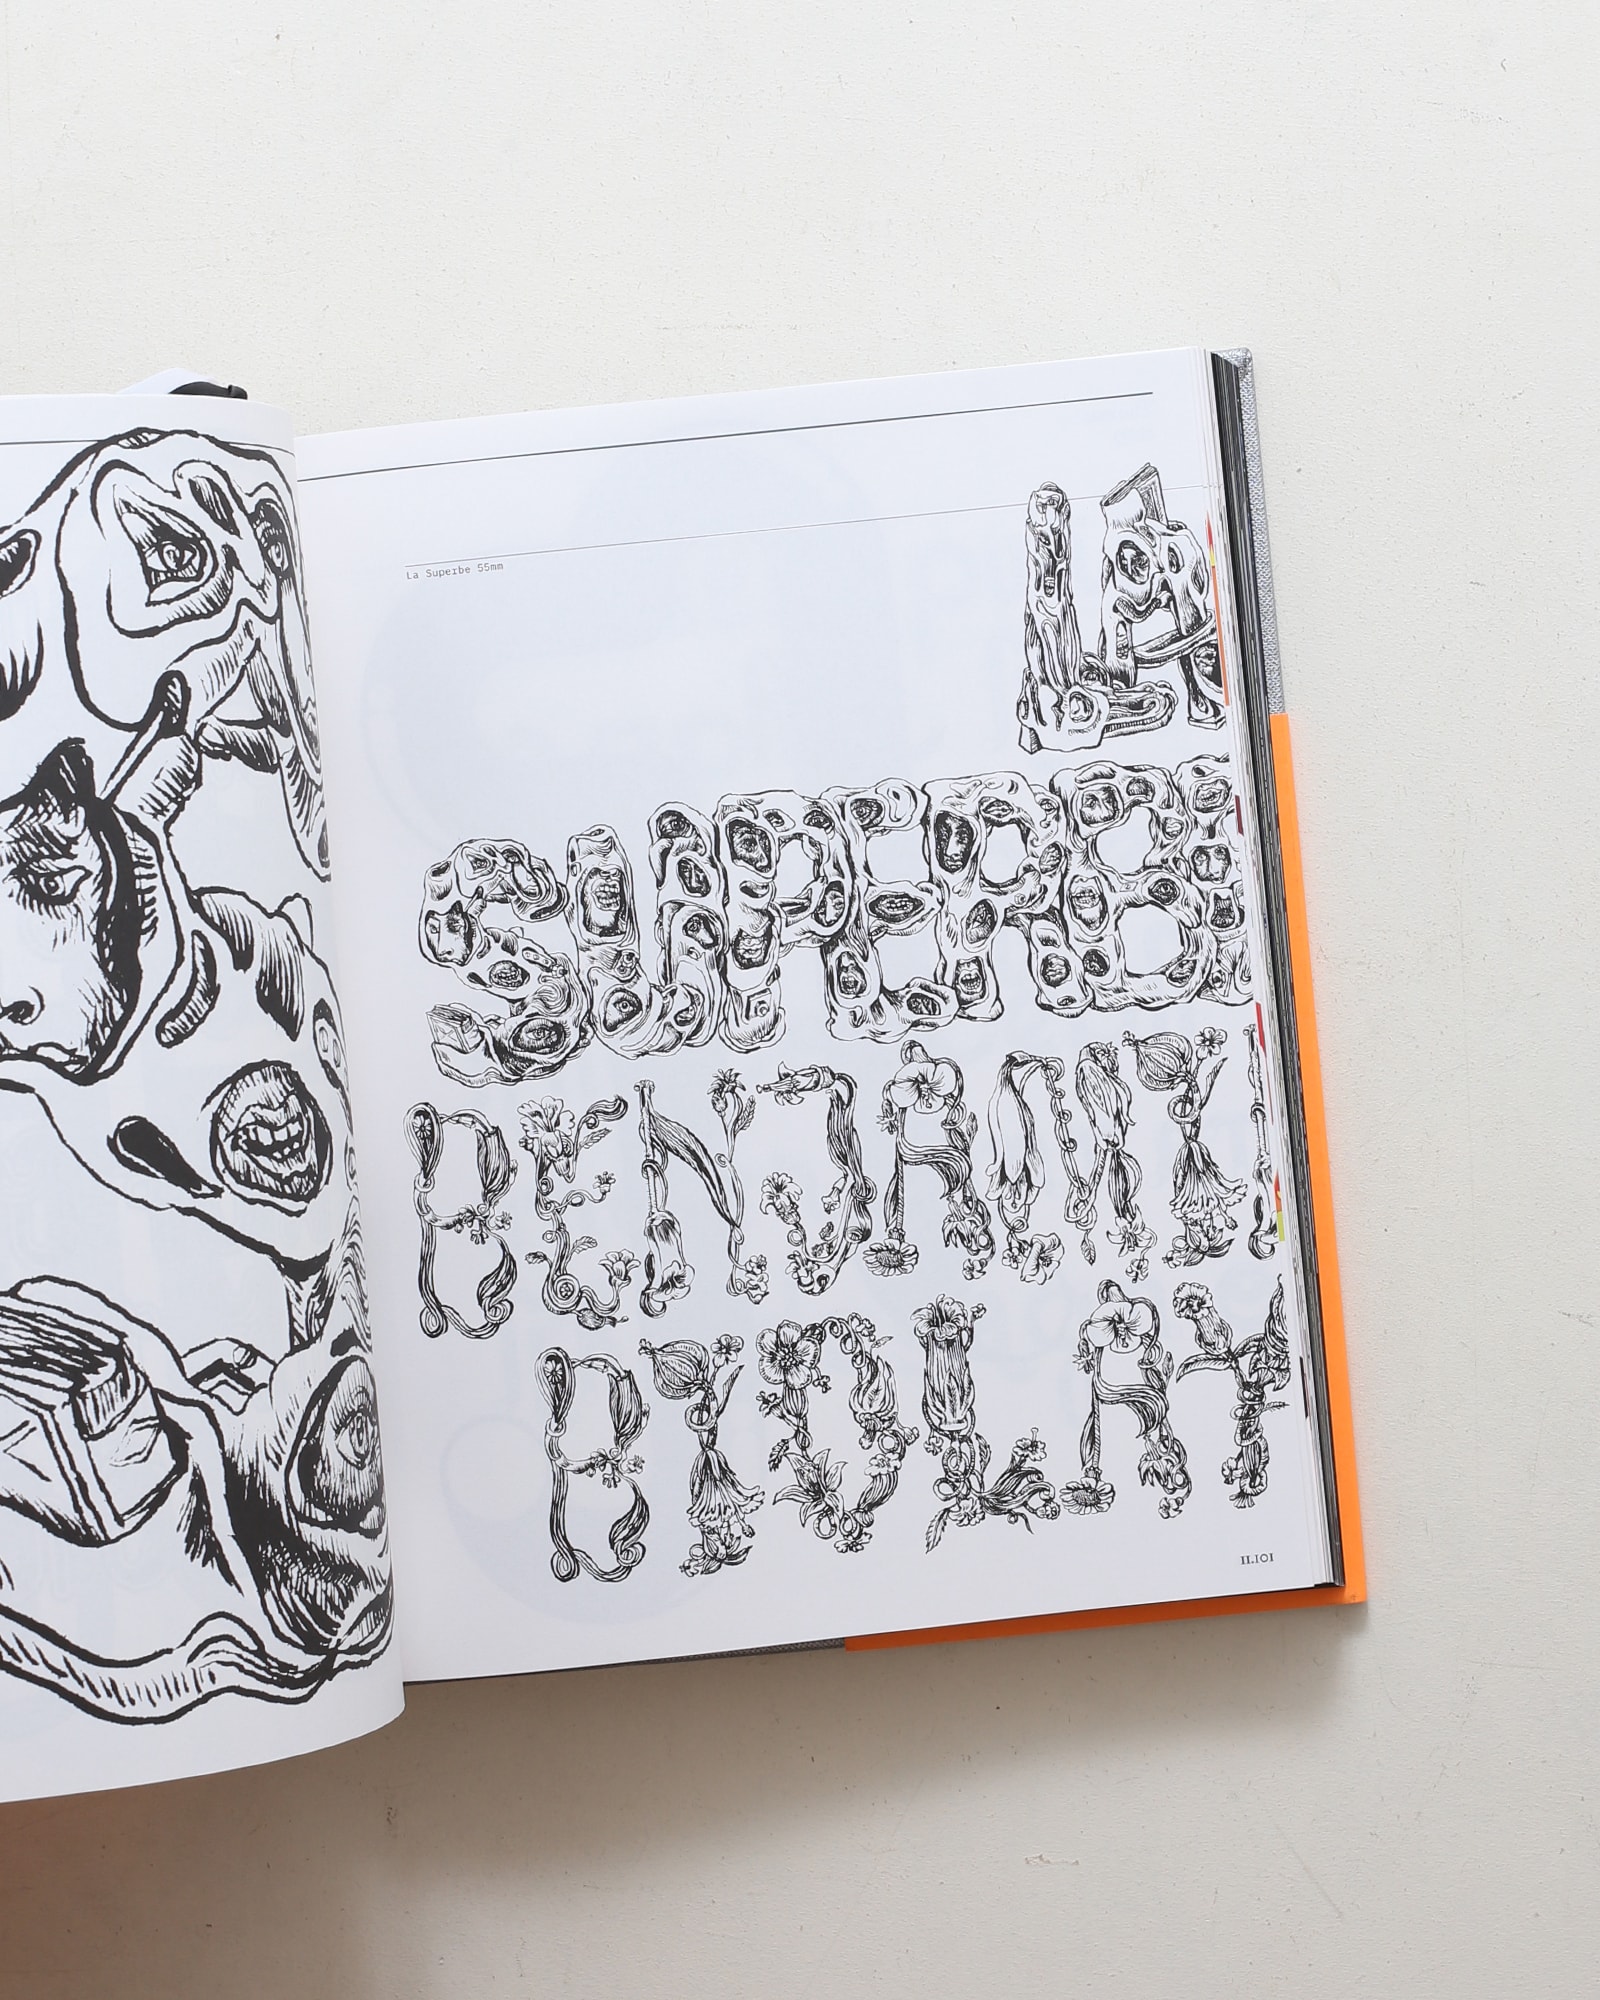 La Superbe 55mm
LA
SUPERBE
BENJAMIN
BIOLAY
II.101